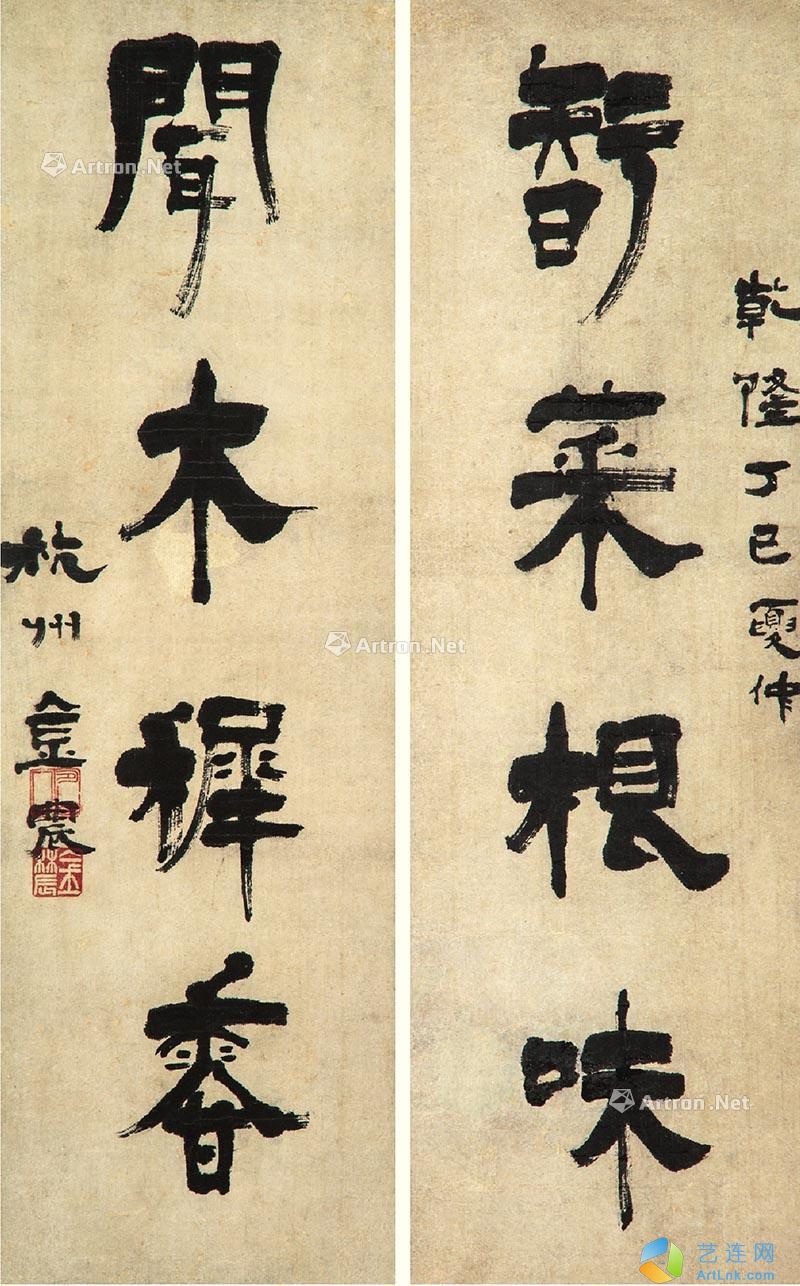 乾隆丁巳夏仲
智菜根味
聞木稺香
杭州金農
Artron.Net
Artron.Net
Artron.Net
艺连网
ArtLnk.com